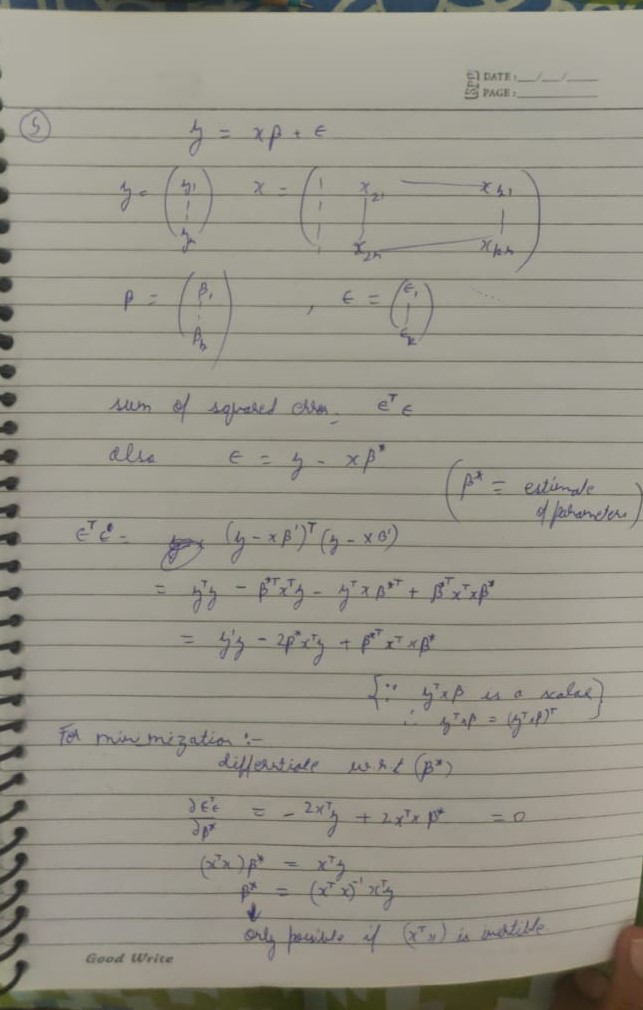 DATE: __/__/____
PAGE: ________
5
y = xβ + ε
y = (y₁ ⋮ yₙ) x = (1 x₂₁ — xₖ₁ ⋮ x₂ₙ — xₖₙ)
β = (β₁ ⋮ βₖ) , ε = (ε₁ ⋮ εₙ)
sum of squared error = εᵀε
also ε = y - xβ*
(β* = estimate
of parameters)
εᵀε = (y - xβ')ᵀ(y - xβ')
= yᵀy - β*ᵀxᵀy - yᵀxβ*ᵀ + β*ᵀxᵀxβ*
= y'y - 2β*xᵀy + β*ᵀxᵀxβ*
{∵ yᵀxβ is a scalar
∴ yᵀxβ = (yᵀxβ)ᵀ}
For minimization :-
differentiate w.r.t (β*)
∂εᵀε/∂β* = - 2xᵀy + 2xᵀxβ* = 0
(xᵀx)β* = xᵀy
β* = (xᵀx)⁻¹xᵀy
↓
only possible if (xᵀx) is invertible
Good Write